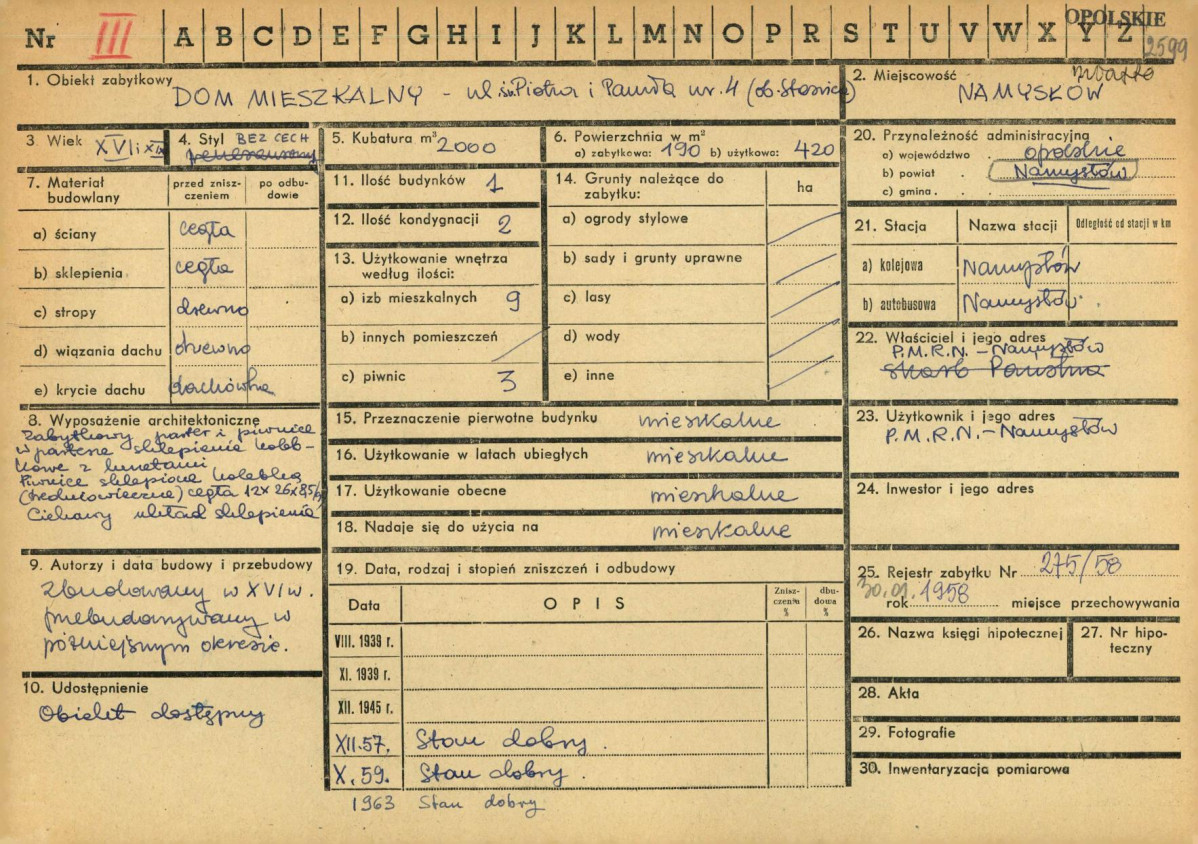 Nr III A B C D E F G H I J K L M N O P R S T U V W X Y Z
OPOLSKIE
2599
1. Obiekt zabytkowy
DOM MIESZKALNY – ul. św. Piotra i Pawła nr. 4 (ob.
2. Miejscowość
NAMYSŁÓW
3. Wiek XVI i XIX
4. Styl BEZ CECH
5. Kubatura m³ 2000
6. Powierzchnia w m²
a) zabytkowa: 190 b) użytkowa: 420
20. Przynależność administracyjna
a) województwo opolskie
b) powiat Namysłów
c) gmina
7. Materiał budowlany
przed zniszczeniem
po odbudowie
a) ściany cegła
b) sklepienia cegła
c) stropy drewno
d) wiązania dachu drewno
e) krycie dachu dachówka
11. Ilość budynków 1
12. Ilość kondygnacji 2
13. Użytkowanie wnętrza
według ilości:
a) izb mieszkalnych 9
b) innych pomieszczeń
c) piwnic 3
14. Grunty należące do
zabytku:
ha
a) ogrody stylowe
b) sady i grunty uprawne
c) lasy
d) wody
e) inne
21. Stacja Nazwa stacji Odległość od stacji w km
a) kolejowa Namysłów
b) autobusowa Namysłów
22. Właściciel i jego adres
P.M.R.N. – Namysłów
Skarb Państwa
8. Wyposażenie architektoniczne
Zabytkowy parter i piwnice
w parterze sklepienia koleb-
kowe z lunetami
Piwnice sklepione kolebką
(średniowieczne) cegła 12x26x8,5/9
Ciekawy układ sklepienia
15. Przeznaczenie pierwotne budynku mieszkalne
16. Użytkowanie w latach ubiegłych mieszkalne
17. Użytkowanie obecne mieszkalne
18. Nadaje się do użycia na mieszkalne
23. Użytkownik i jego adres
P.M.R.N. – Namysłów
24. Inwestor i jego adres
9. Autorzy i data budowy i przebudowy
Zbudowany w XVI w.
przebudowywany w
późniejszym okresie.
10. Udostępnienie
Obiekt dostępny
19. Data, rodzaj i stopień zniszczeń i odbudowy
Data OPIS Zniszczenia % dbudowa %
VIII. 1939 r.
XI. 1939 r.
XII. 1945 r.
XII.57. Stan dobry.
X.59. Stan dobry.
1963 Stan dobry
25. Rejestr zabytku Nr 275/58
30.01.
rok 1958 miejsce przechowywania
26. Nazwa księgi hipotecznej
27. Nr hipoteczny
28. Akta
29. Fotografie
30. Inwentaryzacja pomiarowa